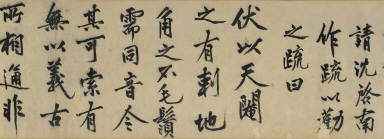 請沈啓南
作疏以勸
之疏曰
伏以天闊
之有剩地
角之不毛鬚
需同音今
其可索有
無以義古
所相通非